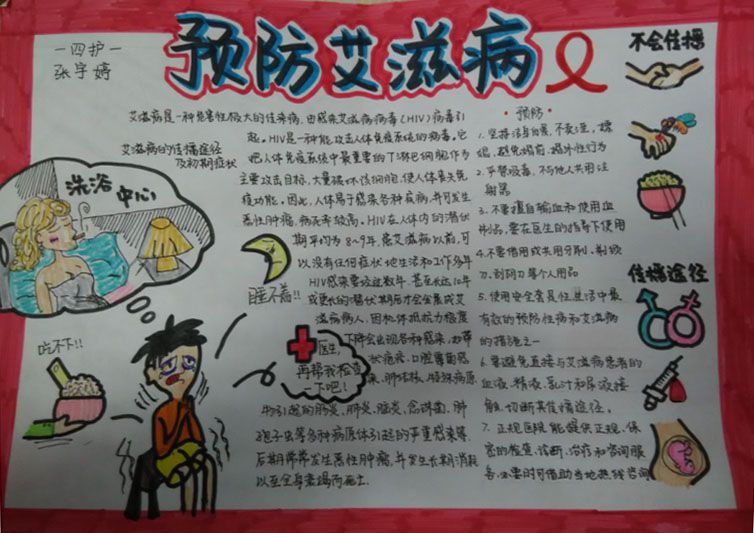 一四护一
张宇婷
预防艾滋病
不会传播
艾滋病是一种危害性极大的传染病,由感染艾滋病病毒(HIV)病毒引
起。HIV是一种能攻击人体免疫系统的病毒。它
把人体免疫系统中最重要的T淋巴细胞作为
主要攻击目标,大量破坏该细胞,使人体丧失免
疫功能。因此,人体易于感染各种疾病,并可发生
恶性肿瘤,病死率较高。HIV在人体内的潜伏
期平均为8~9年,患艾滋病以前,可
以没有任何症状地生活和工作多年
HIV感染要经过数年、甚至长达10年
或更长的潜伏期后才会发展成艾
滋病病人,因机体抵抗力极度
下降会出现各种感染,如带
状疱疹、口腔霉菌感
染、肺结核、特殊病原
引起的肠炎、肺炎、脑炎、念珠菌、肺
孢子虫等多种病原体引起的严重感染等,
后期常常发生恶性肿瘤,并发生长期消耗
以至全身衰竭而死亡.
艾滋病的传播途径
及初期症状
洗浴
中心
睡不着!!
吃不下!!
医生,
再帮我检查
一下吧!
·预防·
1.坚持洁身自爱,不卖淫、嫖
娼,避免婚前、婚外性行为
2.严禁吸毒,不与他人共用注
射器
3.不要擅自输血和使用血
制品,要在医生的指导下使用
4.不要借用或共用牙刷、剃须
刀、刮阴刀等个人用品
5.使用安全套是性生活中最
有效的预防性病和艾滋病
的措施之一
6.要避免直接与艾滋病患者的
血液、精液、乳汁和尿液接
触,切断其传播途径。
7.正规医院能提供正规、保
密的检查、诊断、治疗和咨询服
务,必要时可借助当地热线咨询
传播途径